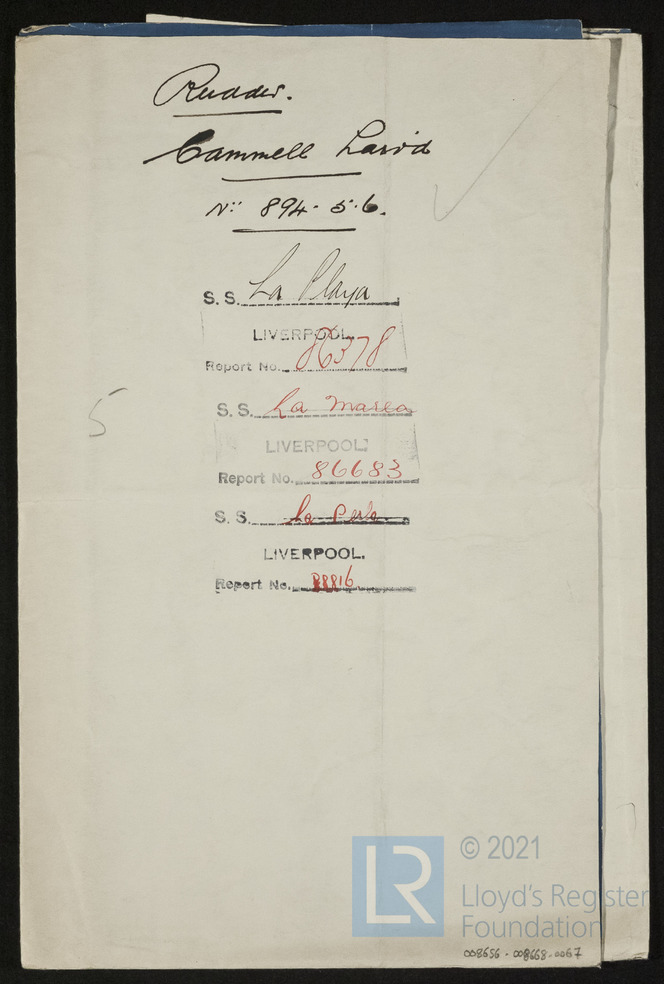 Rudder.
Cammell Laird
No: 894. 5. 6.
S. S. La Playa
LIVERPOOL.
Report No. 86378
S. S. La Marea
LIVERPOOL.
Report No. 86683
S. S. La Perla
LIVERPOOL.
Report No. 88816
5
LR
© 2021
Lloyd's Register
Foundation
008656-008668-0067